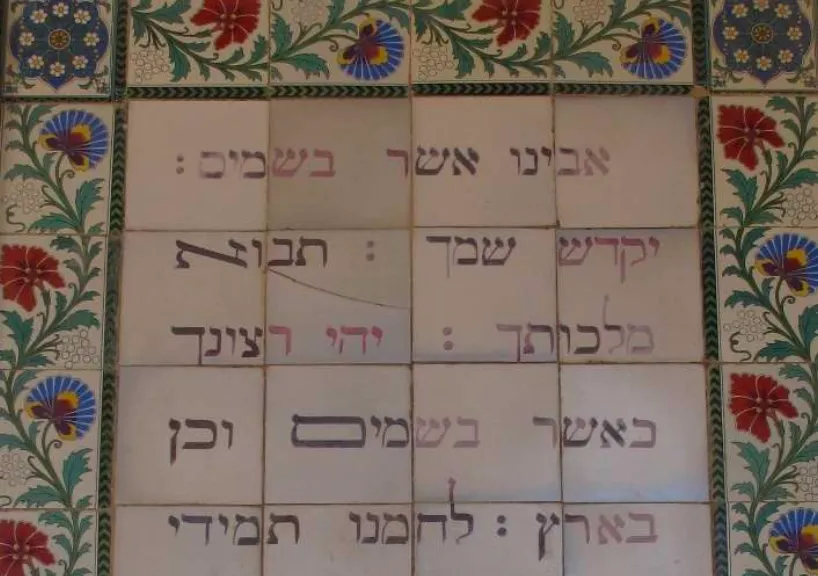 אבינו אשר בשמים :
יקדש שמך : תבוא
מלכותך : יהי רצונך
כאשר בשמים וכן
בארץ : לחמנו תמידי